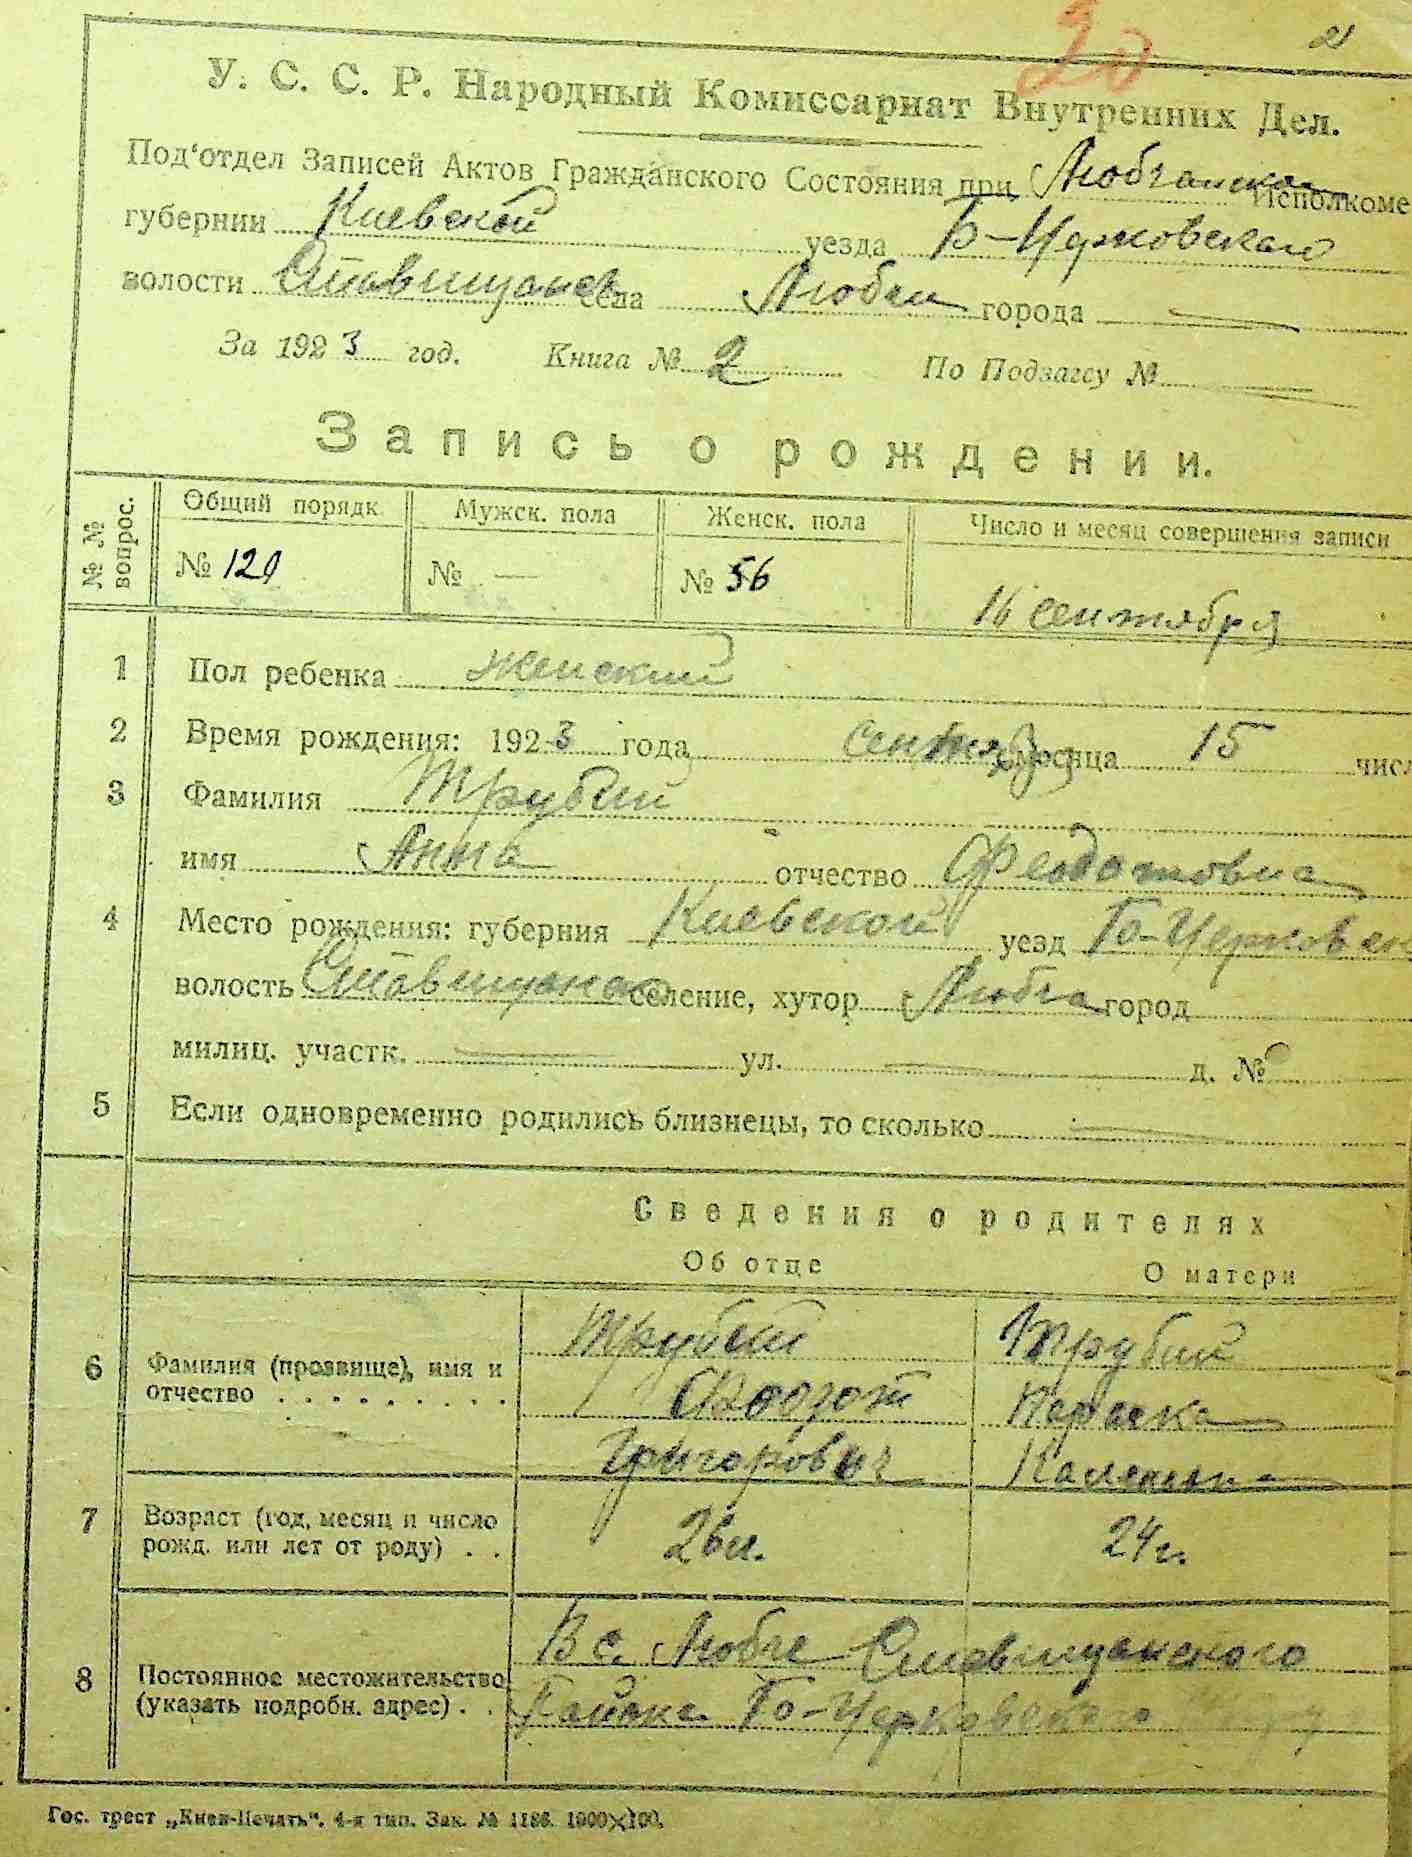 20
2
У. С. С. Р. Народный Комиссариат Внутренних Дел.
Под'отдел Записей Актов Гражданского Состояния при Любчанском Исполкоме
губернии Киевской уезда Б-Церковского
волости Ставищанск села Любчи города —
За 1923 год. Книга № 2 По Подзагсу № —
Запись о рождении.
№ № вопрос. Общий порядк. Мужск. пола Женск. пола Число и месяц совершения записи
№ 120 № — № 56 16 сентября
1 Пол ребенка женский
2 Время рождения: 1923 года сентября месяца 15 числ
3 Фамилия Трубий
имя Анна отчество Феодотовна
4 Место рождения: губерния Киевской уезд Б-Церковск
волость Ставищанск селение, хутор Любча город
милиц. участк. — ул. — д. №
5 Если одновременно родились близнецы, то сколько —
Сведения о родителях
Об отце О матери
6 Фамилия (прозвище), имя и отчество . . . . . . . . . Трубий Трубий
Феодот Параска
Григорович
7 Возраст (год, месяц и число рожд. или лет от роду) . . 26 л. 24 г.
8 Постоянное местожительство (указать подробн. адрес) . . В с. Любче Ставищанского
Района Б-Церковского
Гос. трест „Киев-Печать“. 4-я тип. Зак. № 1186. 1000×100.